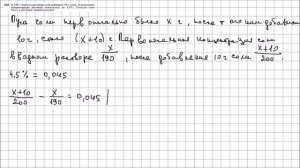 Пусть соли первоначально было x г, после того как добавили
10 г, стало (x+10) г. Первоначальная концентрация соли
в водном растворе x/190, после добавления 10 г соли x+10/200.
4,5% = 0,045
x+10/200 - x/190 = 0,045